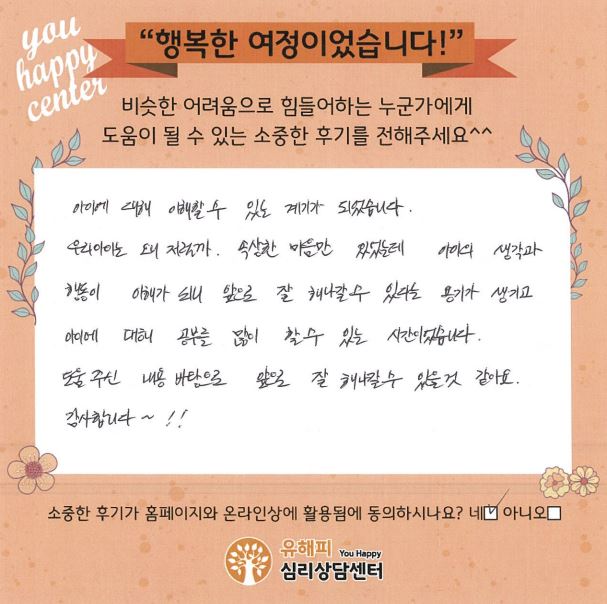 you
happy
center
“행복한 여정이었습니다!”
비슷한 어려움으로 힘들어하는 누군가에게
도움이 될 수 있는 소중한 후기를 전해주세요^^
아이에 대해 이해할 수 있는 계기가 되었습니다.
우리아이는 왜 저럴까. 속상한 마음만 있었는데 아이의 생각과
행동이 이해가 되니 앞으로 잘 해나갈 수 있다는 용기가 생기고
아이에 대해 공부를 많이 할 수 있는 시간이었습니다.
도움 주신 내용 바탕으로 앞으로 잘 해나갈 수 있을것 같아요.
감사합니다 ~ !!
소중한 후기가 홈페이지와 온라인상에 활용됨에 동의하시나요? 네☑ 아니오☐
유해피 You Happy
심리상담센터